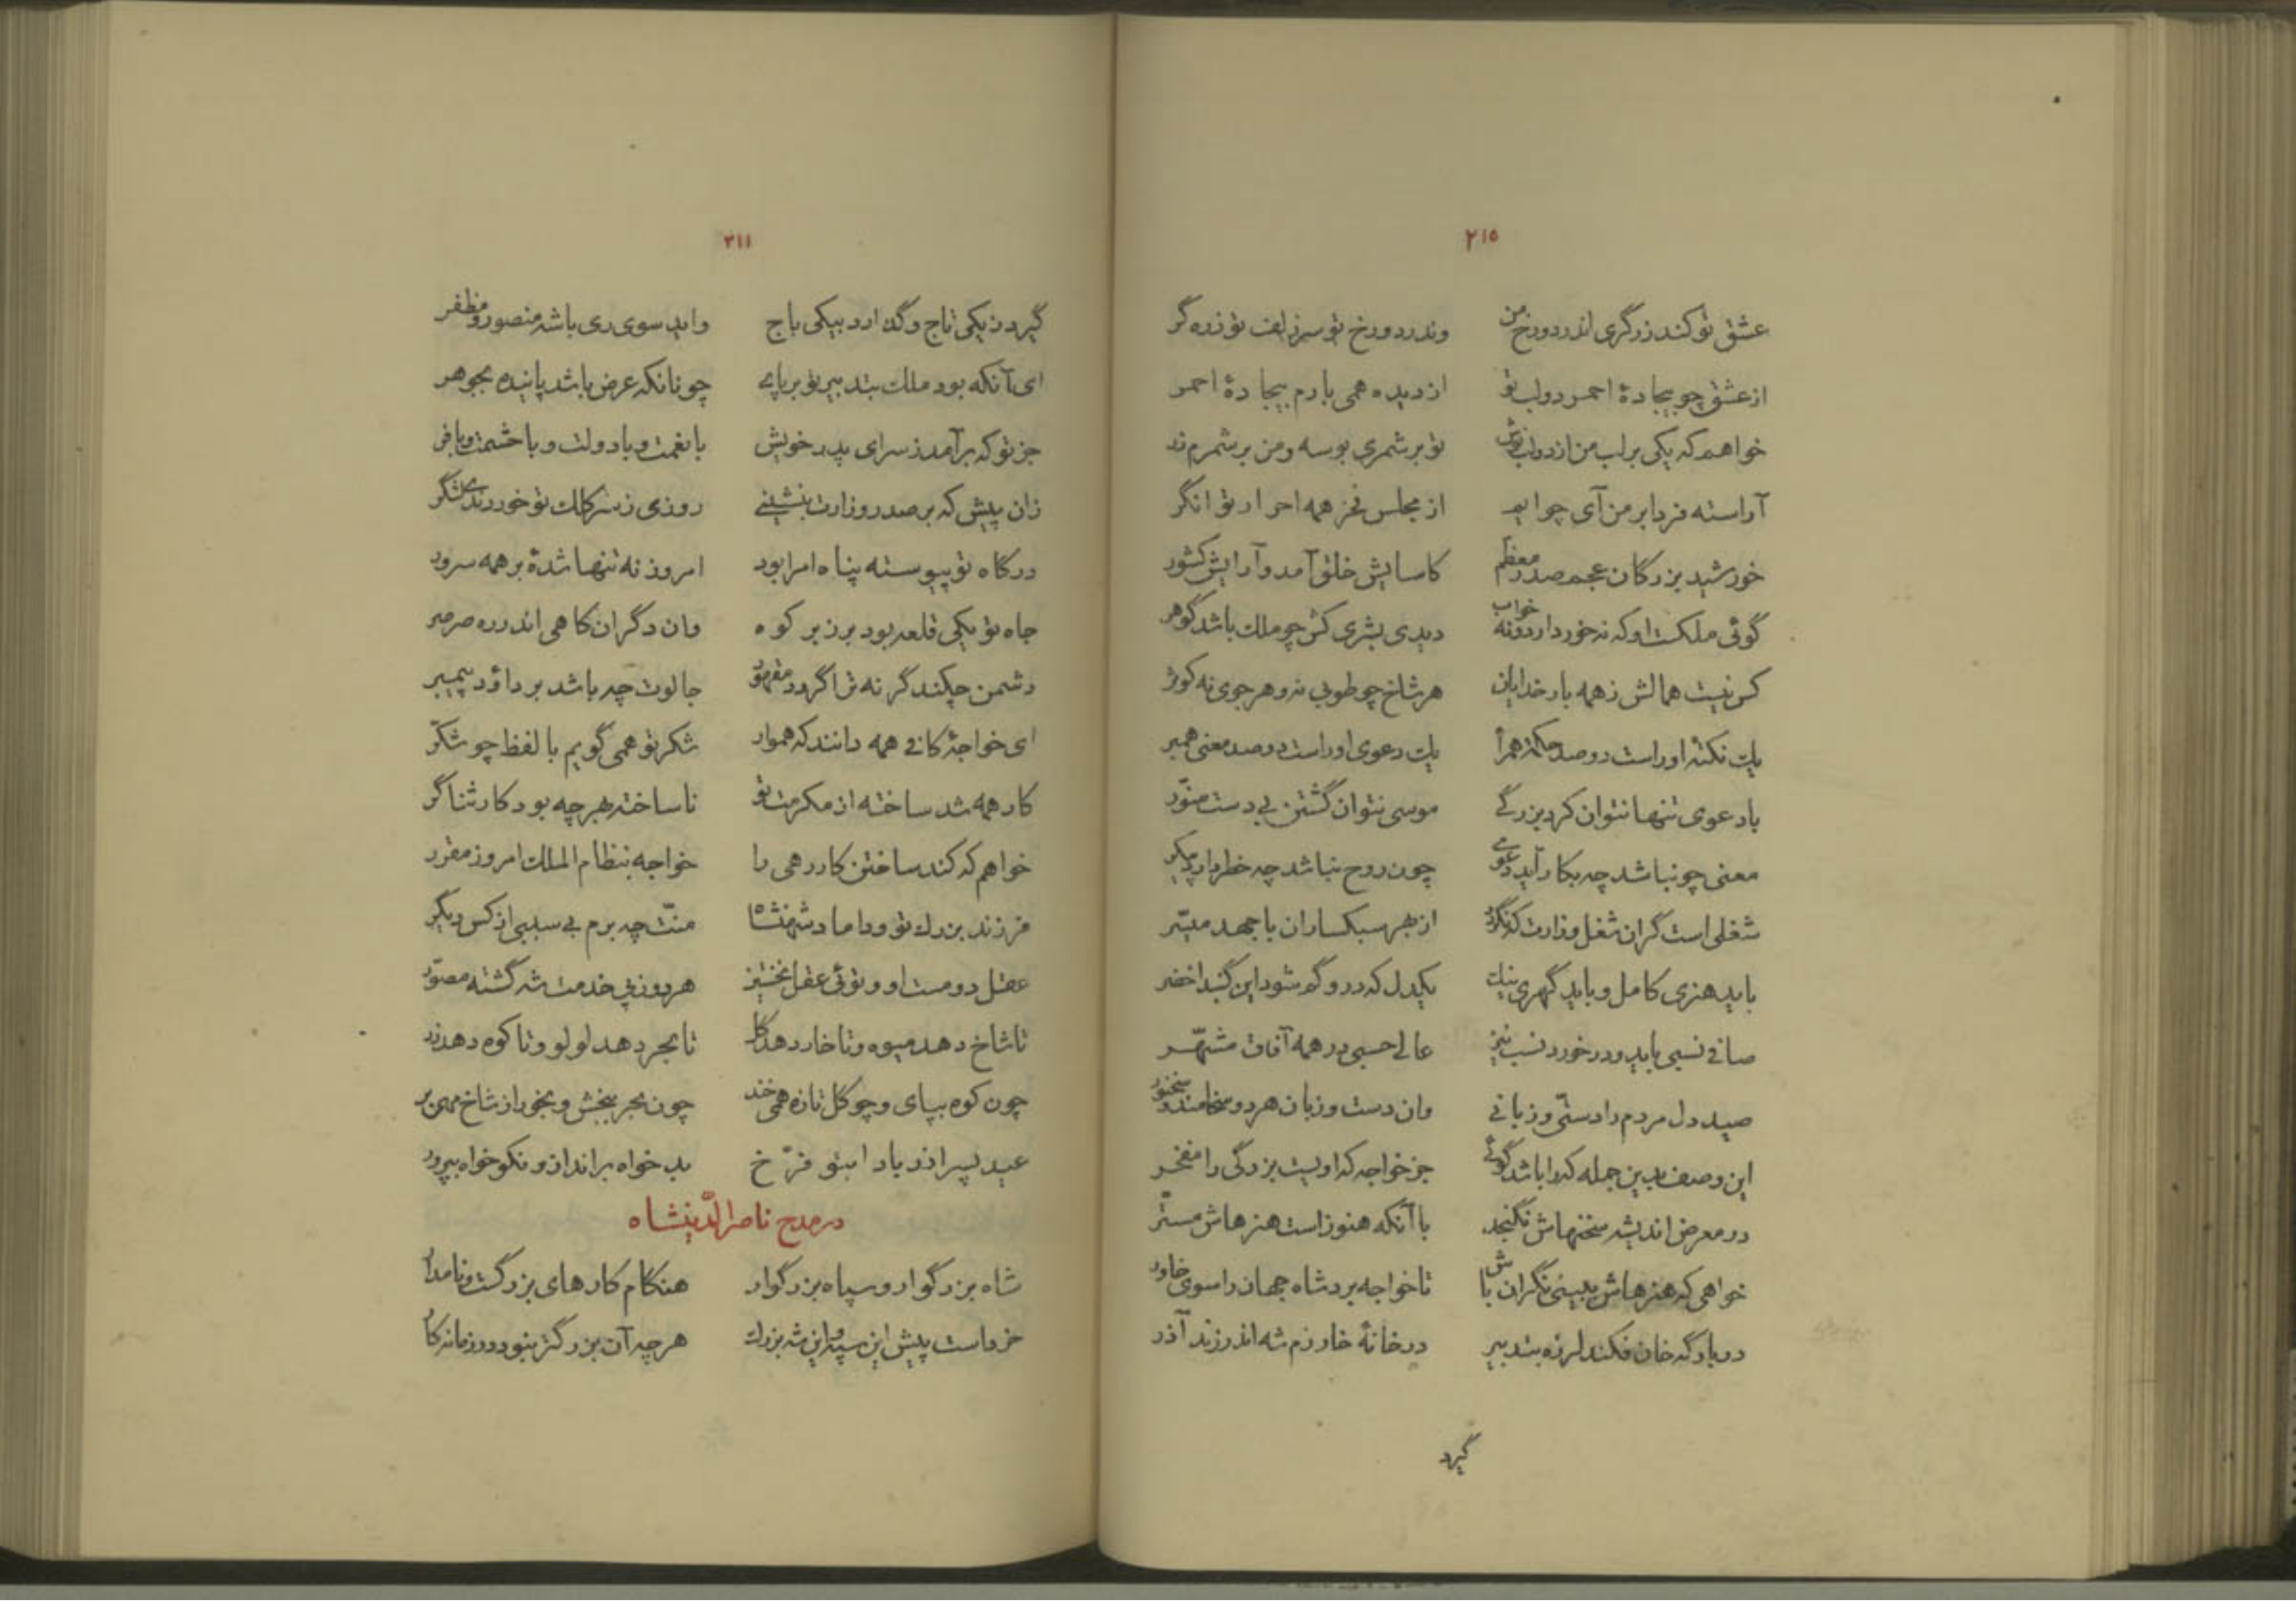 ۲۱۵
عشق تو کند زرگری اندر دو رخ من وندر دو رخ تو سر زلف تو زره گر
از عشق چو بیجادهٔ احمر دو لب تو از دیده همی بارم بیجادهٔ احمر
خواهم که یکی بر لب من از دو لب تو بر شمری بوسه و من بر شمرم زر
آراسته فردا بر من آی چو ایم از مجلس فخر همه احرار توانگر
خورشید بزرگان عجم صدر معظم کاسایش خلق آمد و آرایش کشور
گوئی ملکست او که نه خور دارد و نه خواب دیدی بشری کش چو ملک باشد گوهر
کس نیست همالش ز همه بار خدایان هر شاخ چو طوبی نه و هر جوی نه کوثر
یک نکتهٔ او راست دو صد حکمت همرا یک دعوی او راست دو صد معنی همبر
با دعوی تنها نتوان کرد بزرگی موسی نتوان گشتن بی دست منوّر
معنی چو نباشد چه بکار آید دعوی چون روح نباشد چه خطر دارد پیکر
شغلی است گران شغل وزارت که نگردد از بهر سبکساران با جهد میسّر
باید هنری کامل و باید گهری نیک یکدل که درو گم شود این گنبد اخضر
صافی نسبی باید و در خورد نسب نیز عالی حسبی در همه آفاق مشهّر
صید دل مردم را دستی و زبانی وان دست و زبان هر دو سخامند و سخنور
این وصف بدین جمله کرا باشد گوئی جز خواجه که اویست بزرگی را مفخر
در معرض اندیشه سخنهاش نگنجد با آنکه هنوز است هنرهاش مستّر
خواهی که هنرهاش ببینی نگران باش تا خواجه برد شاه جهان را سوی خاور
در بارگه خان فکند لرزه بتدبیر در خانهٔ خارزم شه اندر زند آذر
گیرد
۲۱۱
گیرد ز یکی تاج و گذارد بیکی باج واید سوی ری باشه منصور و مظفر
ای آنکه بود ملک بتدبیر تو بر پای چونانکه عرض باشد پاینده بجوهر
جز تو که برآمد ز سرای پدر خویش با نعمت و با دولت و با حشمت و با فر
زان پیش که بر صدر وزارت بنشینی روزی ز سر کلک تو خوردندی لشگر
درگاه تو پیوسته پناه امرا بود امروز نه تنها شدهٔ بر همه سرور
جاه تو یکی قلعه بود برز بر کوه وان دگران کاهی اندر ره صرصر
دشمن چکند گر نه ترا گردد مقهور جالوت چه باشد بر داود پیمبر
ای خواجهٔ کافی همه دانند که هموار شکر تو همی گویم با لفظ چو شکّر
کار همه شد ساخته از مکرمت تو ناساخته بهر چه بود کار ثناگر
خواهم که کند ساختن کار رهی را خواجه بنظام الملک امروز مقرر
فرزند بزرگ تو و داماد شهنشاه منّت چه برم بی سببی از کس دیگر
عقل دومست او و توئی عقل نخستین هر دو ز پی خدمت شه گشته مصوّر
تا شاخ دهد میوه و تا خار دهد گل تا بحر دهد لولو و تا کوه دهد زر
چون کوه بپای و چو گل تازه همی خند چون بحر ببخش و بخور از شاخ مهی بر
عید پسر آزر بادا بتو فرّخ بد خواه برانداز و نکو خواه بپرور
در مدح ناصر الدّینشاه
شاه بزرگوار و سپاه بزرگوار هنگام کارهای بزرگست و نامدار
خرد است پیش این سپه و این شه بزرگ هر چه آن بزرگتر بنبود در زمانه کار